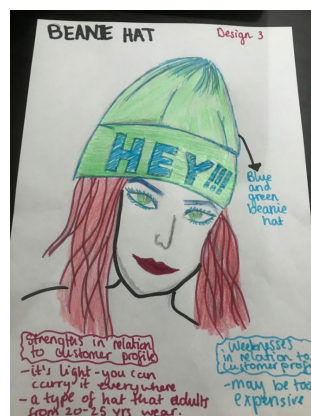 BEANIE HAT
Design 3
HEY!!!
Blue
and
green
beanie
hat
Strengths in relation
to customer profile
-it's light-you can
carry it everywhere
-a type of hat that adults
from 20-25 yrs wear.
Weaknesses
in relation to
customer profi
-may be too
expensive